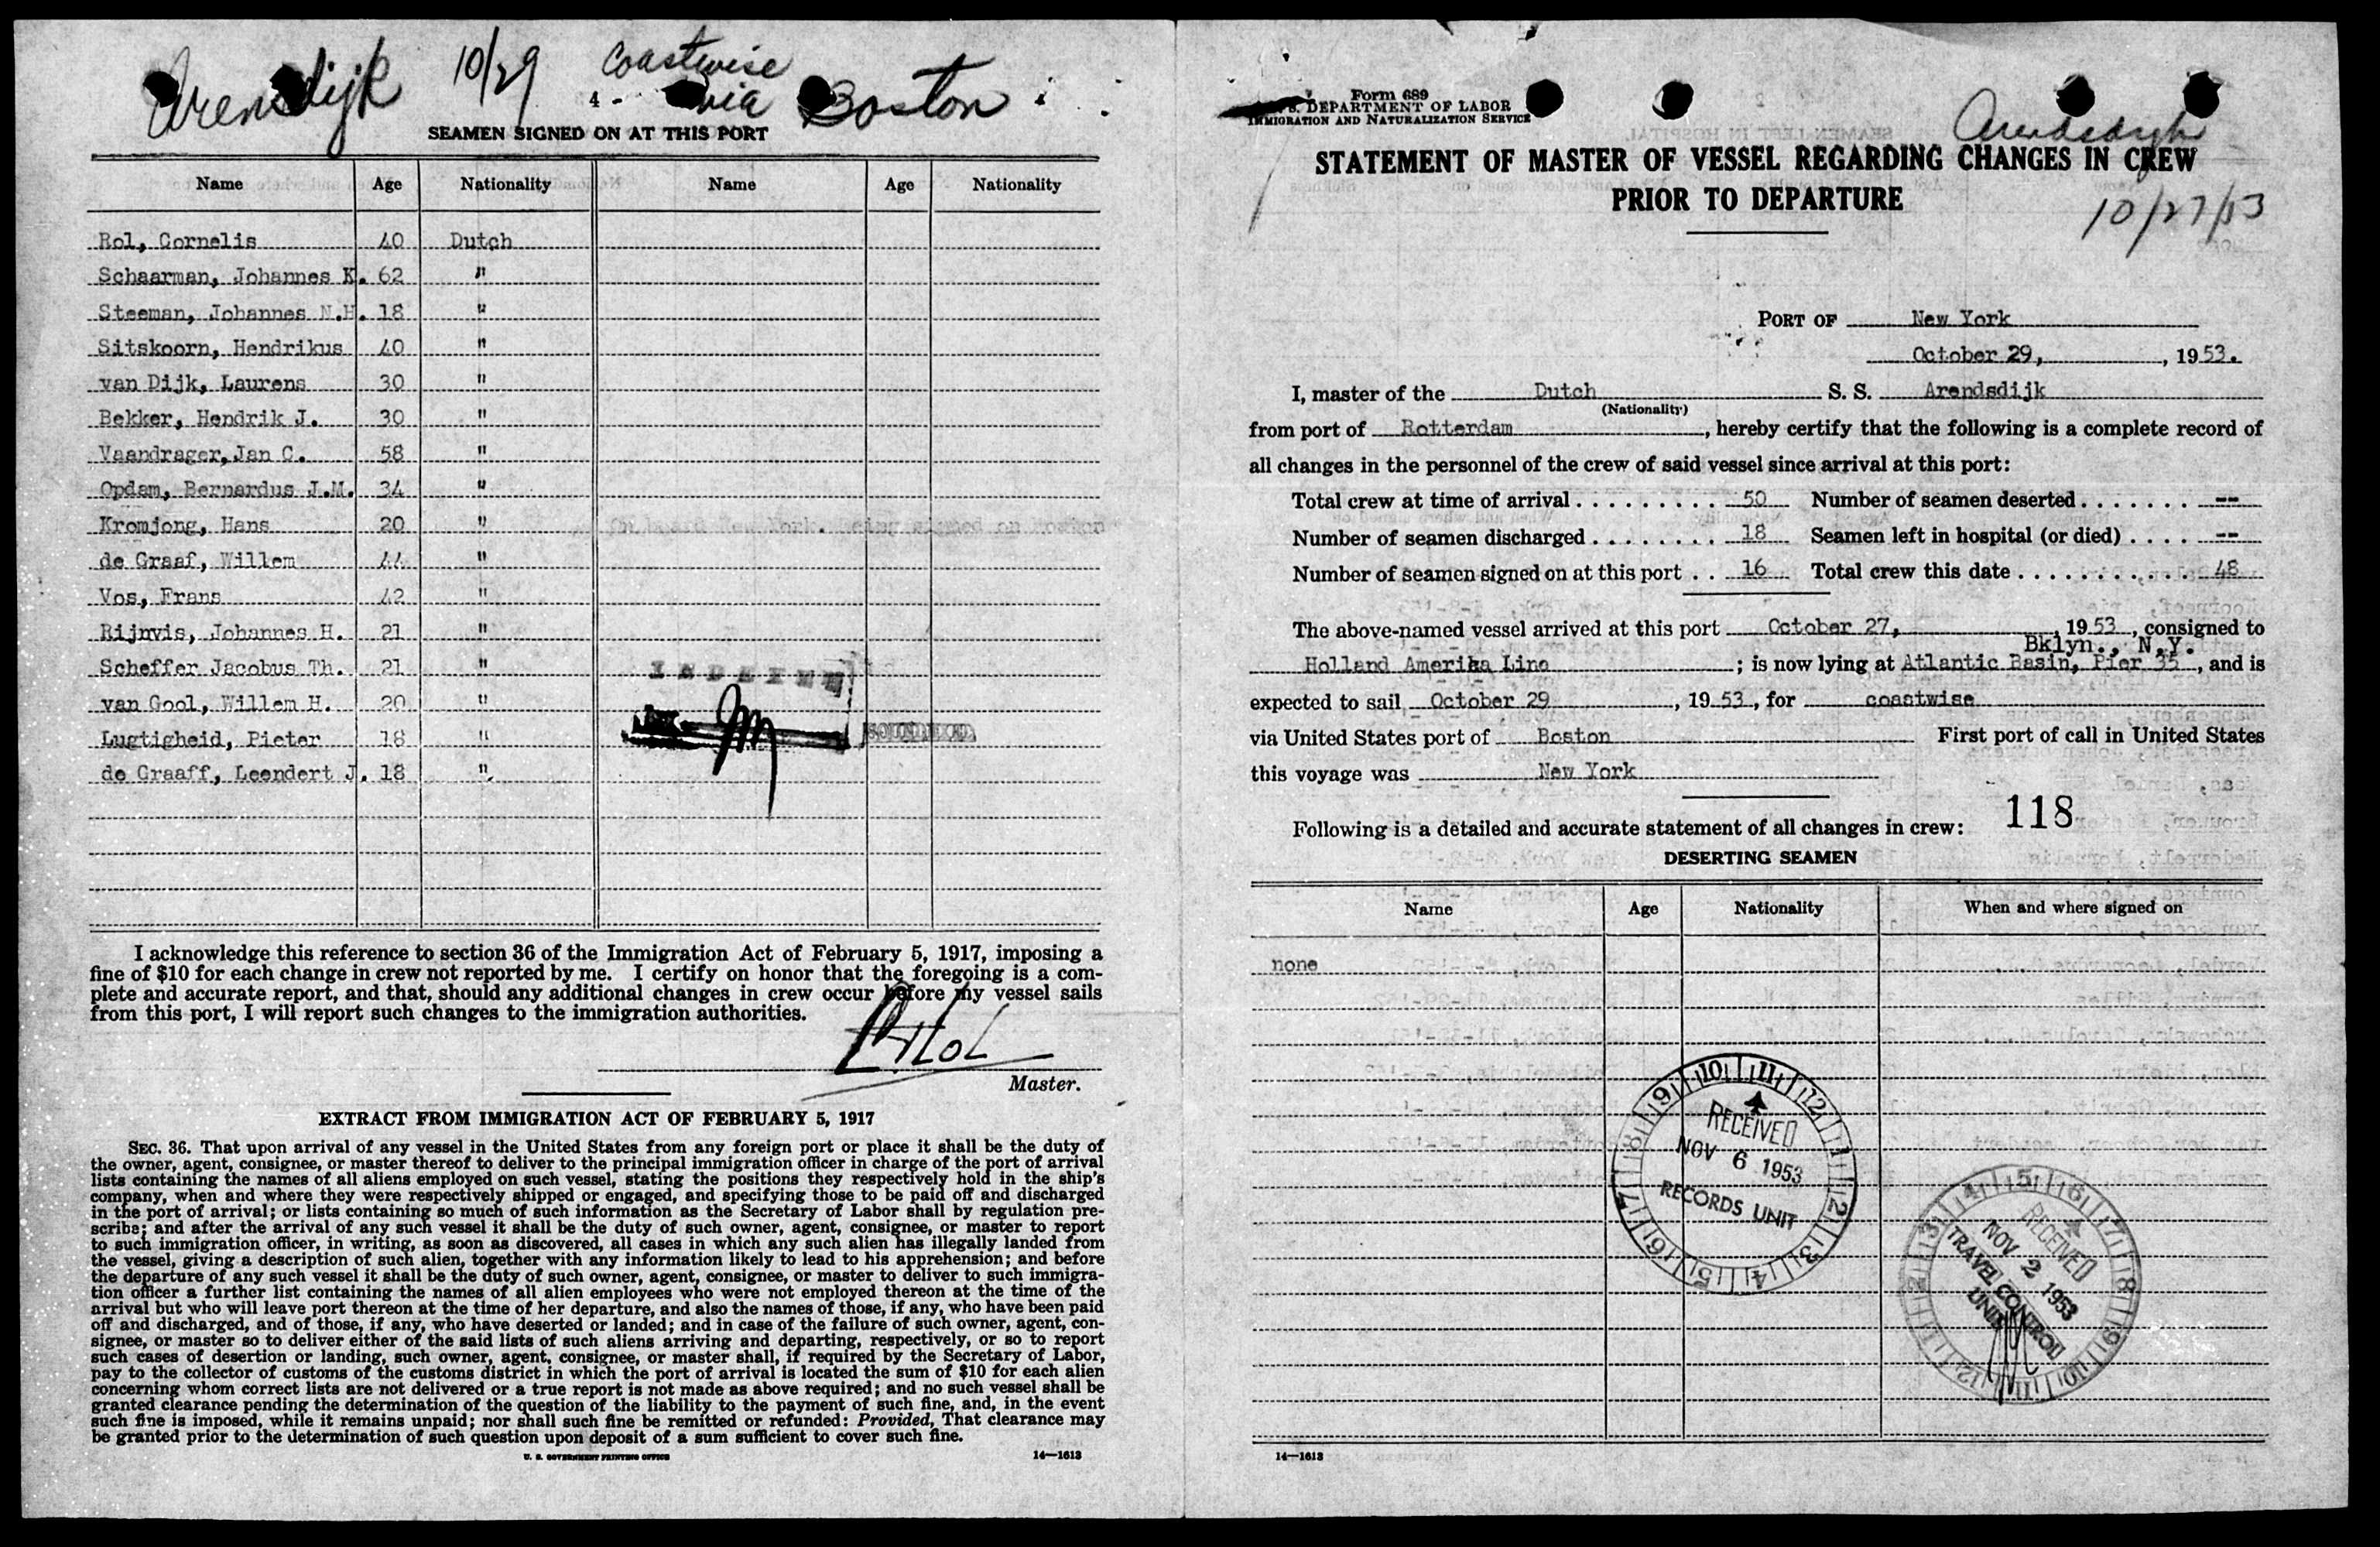 Arendijk 10/29 Coastwise
4 - via Boston
SEAMEN SIGNED ON AT THIS PORT
Name Age Nationality Name Age Nationality
Rol, Cornelis 40 Dutch
Schaarman, Johannes K. 62 "
Steeman, Johannes N.H. 18 "
Sitskoorn, Hendrikus 40 "
van Dijk, Laurens 30 "
Bekker, Hendrik J. 30 "
Vaandrager, Jan C. 58 "
Opdam, Bernardus J.M. 34 "
Kromjong, Hans 20 "
de Graaf, Willem 44 "
Vos, Frans 42 "
Rijnvis, Johannes H. 21 "
Scheffer Jacobus Th. 21 "
INDEXED
van Gool, Willem H. 20 "
Lugtigheid, Pieter 18 "
de Graaff, Leendert J. 18 "
I acknowledge this reference to section 36 of the Immigration Act of February 5, 1917, imposing a
fine of $10 for each change in crew not reported by me. I certify on honor that the foregoing is a com-
plete and accurate report, and that, should any additional changes in crew occur before my vessel sails
from this port, I will report such changes to the immigration authorities.
Master.
EXTRACT FROM IMMIGRATION ACT OF FEBRUARY 5, 1917
SEC. 36. That upon arrival of any vessel in the United States from any foreign port or place it shall be the duty of
the owner, agent, consignee, or master thereof to deliver to the principal immigration officer in charge of the port of arrival
lists containing the names of all aliens employed on such vessel, stating the positions they respectively hold in the ship's
company, when and where they were respectively shipped or engaged, and specifying those to be paid off and discharged
in the port of arrival; or lists containing so much of such information as the Secretary of Labor shall by regulation pre-
scribe; and after the arrival of any such vessel it shall be the duty of such owner, agent, consignee, or master to report
to such immigration officer, in writing, as soon as discovered, all cases in which any such alien has illegally landed from
the vessel, giving a description of such alien, together with any information likely to lead to his apprehension; and before
the departure of any such vessel it shall be the duty of such owner, agent, consignee, or master to deliver to such immigra-
tion officer a further list containing the names of all alien employees who were not employed thereon at the time of the
arrival but who will leave port thereon at the time of her departure, and also the names of those, if any, who have been paid
off and discharged, and of those, if any, who have deserted or landed; and in case of the failure of such owner, agent, con-
signee, or master so to deliver either of the said lists of such aliens arriving and departing, respectively, or so to report
such cases of desertion or landing, such owner, agent, consignee, or master shall, if required by the Secretary of Labor,
pay to the collector of customs of the customs district in which the port of arrival is located the sum of $10 for each alien
concerning whom correct lists are not delivered or a true report is not made as above required; and no such vessel shall be
granted clearance pending the determination of the question of the liability to the payment of such fine, and, in the event
such fine is imposed, while it remains unpaid; nor shall such fine be remitted or refunded: Provided, That clearance may
be granted prior to the determination of such question upon deposit of a sum sufficient to cover such fine.
U. S. GOVERNMENT PRINTING OFFICE 14—1613
Form 689
U. S. DEPARTMENT OF LABOR
IMMIGRATION AND NATURALIZATION SERVICE
STATEMENT OF MASTER OF VESSEL REGARDING CHANGES IN CREW
PRIOR TO DEPARTURE
10/27/53
PORT OF New York
October 29, , 1953.
I, master of the Dutch S. S. Arendsdijk
(Nationality)
from port of Rotterdam , hereby certify that the following is a complete record of
all changes in the personnel of the crew of said vessel since arrival at this port:
Total crew at time of arrival 50 Number of seamen deserted --
Number of seamen discharged 18 Seamen left in hospital (or died) --
Number of seamen signed on at this port 16 Total crew this date 48
The above-named vessel arrived at this port October 27, , 1953 , consigned to
Bklyn., N.Y.
Holland Amerika Line ; is now lying at Atlantic Basin, Pier 35 , and is
expected to sail October 29 , 1953 , for coastwise
via United States port of Boston First port of call in United States
this voyage was New York
118
Following is a detailed and accurate statement of all changes in crew:
DESERTING SEAMEN
Name Age Nationality When and where signed on
none
RECEIVED
NOV 6 1953
RECORDS UNIT
RECEIVED
NOV 2 1953
TRAVEL CONTROL
UNIT
14—1613